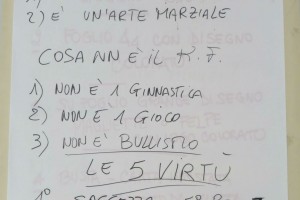 2) È UN'ARTE MARZIALE
COSA NN È IL K.F.
1) NON È 1 GINNASTICA
2) NON È 1 GIOCO
3) NON È BULLISMO
LE 5 VIRTÙ
1°